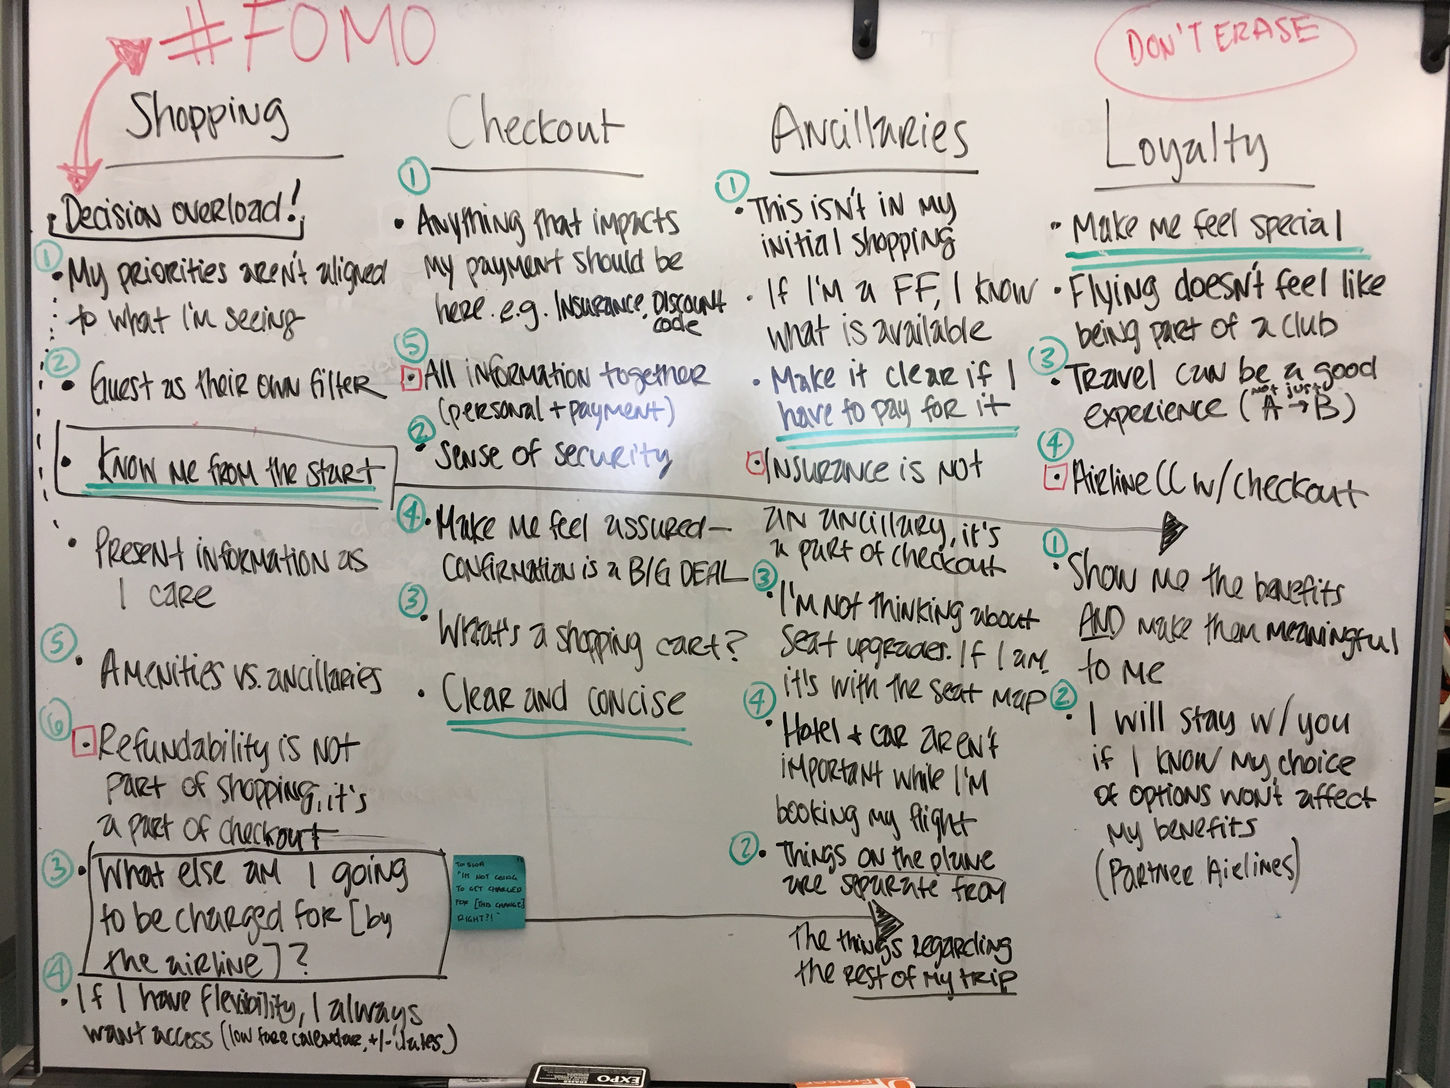 #FOMO
DON'T ERASE
Shopping
Decision overload!
1
• My priorities aren't aligned
to what I'm seeing
2
• Guest as their own filter
• Know me from the start
• Present information as
I care
5
• Amenities vs. ancillaries
6
• Refundability is not
part of shopping, it's
a part of checkout
3
• What else am I going
to be charged for [by
the airline]?
4
• If I have flexibility, I always
want access (low fare calendar, +/- dates)
"I'm not going
to get charged
for [bag change]
right?!"
Checkout
1
• Anything that impacts
my payment should be
here. e.g. Insurance, Discount
code
5
• All information together
(personal + payment)
2
• Sense of security
4
• Make me feel assured –
confirmation is a BIG DEAL
3
• What's a shopping cart?
• Clear and concise
Ancillaries
1
• This isn't in my
initial shopping
• If I'm a FF, I know
what is available
• Make it clear if I
have to pay for it
• Insurance is not
an ancillary, it's
a part of checkout
3
• I'm not thinking about
seat upgrades. If I am
it's with the seat map
4
• Hotel + car aren't
important while I'm
booking my flight
2
• Things on the plane
are separate from
the things regarding
the rest of my trip
Loyalty
• Make me feel special
• Flying doesn't feel like
being part of a club
3
• Travel can be a good
not just
experience (A → B)
4
• Airline CC w/ checkout
1
• Show me the benefits
AND make them meaningful
to me
2
• I will stay w/ you
if I know my choice
of options won't affect
my benefits
(Partner Airlines)
EXPO